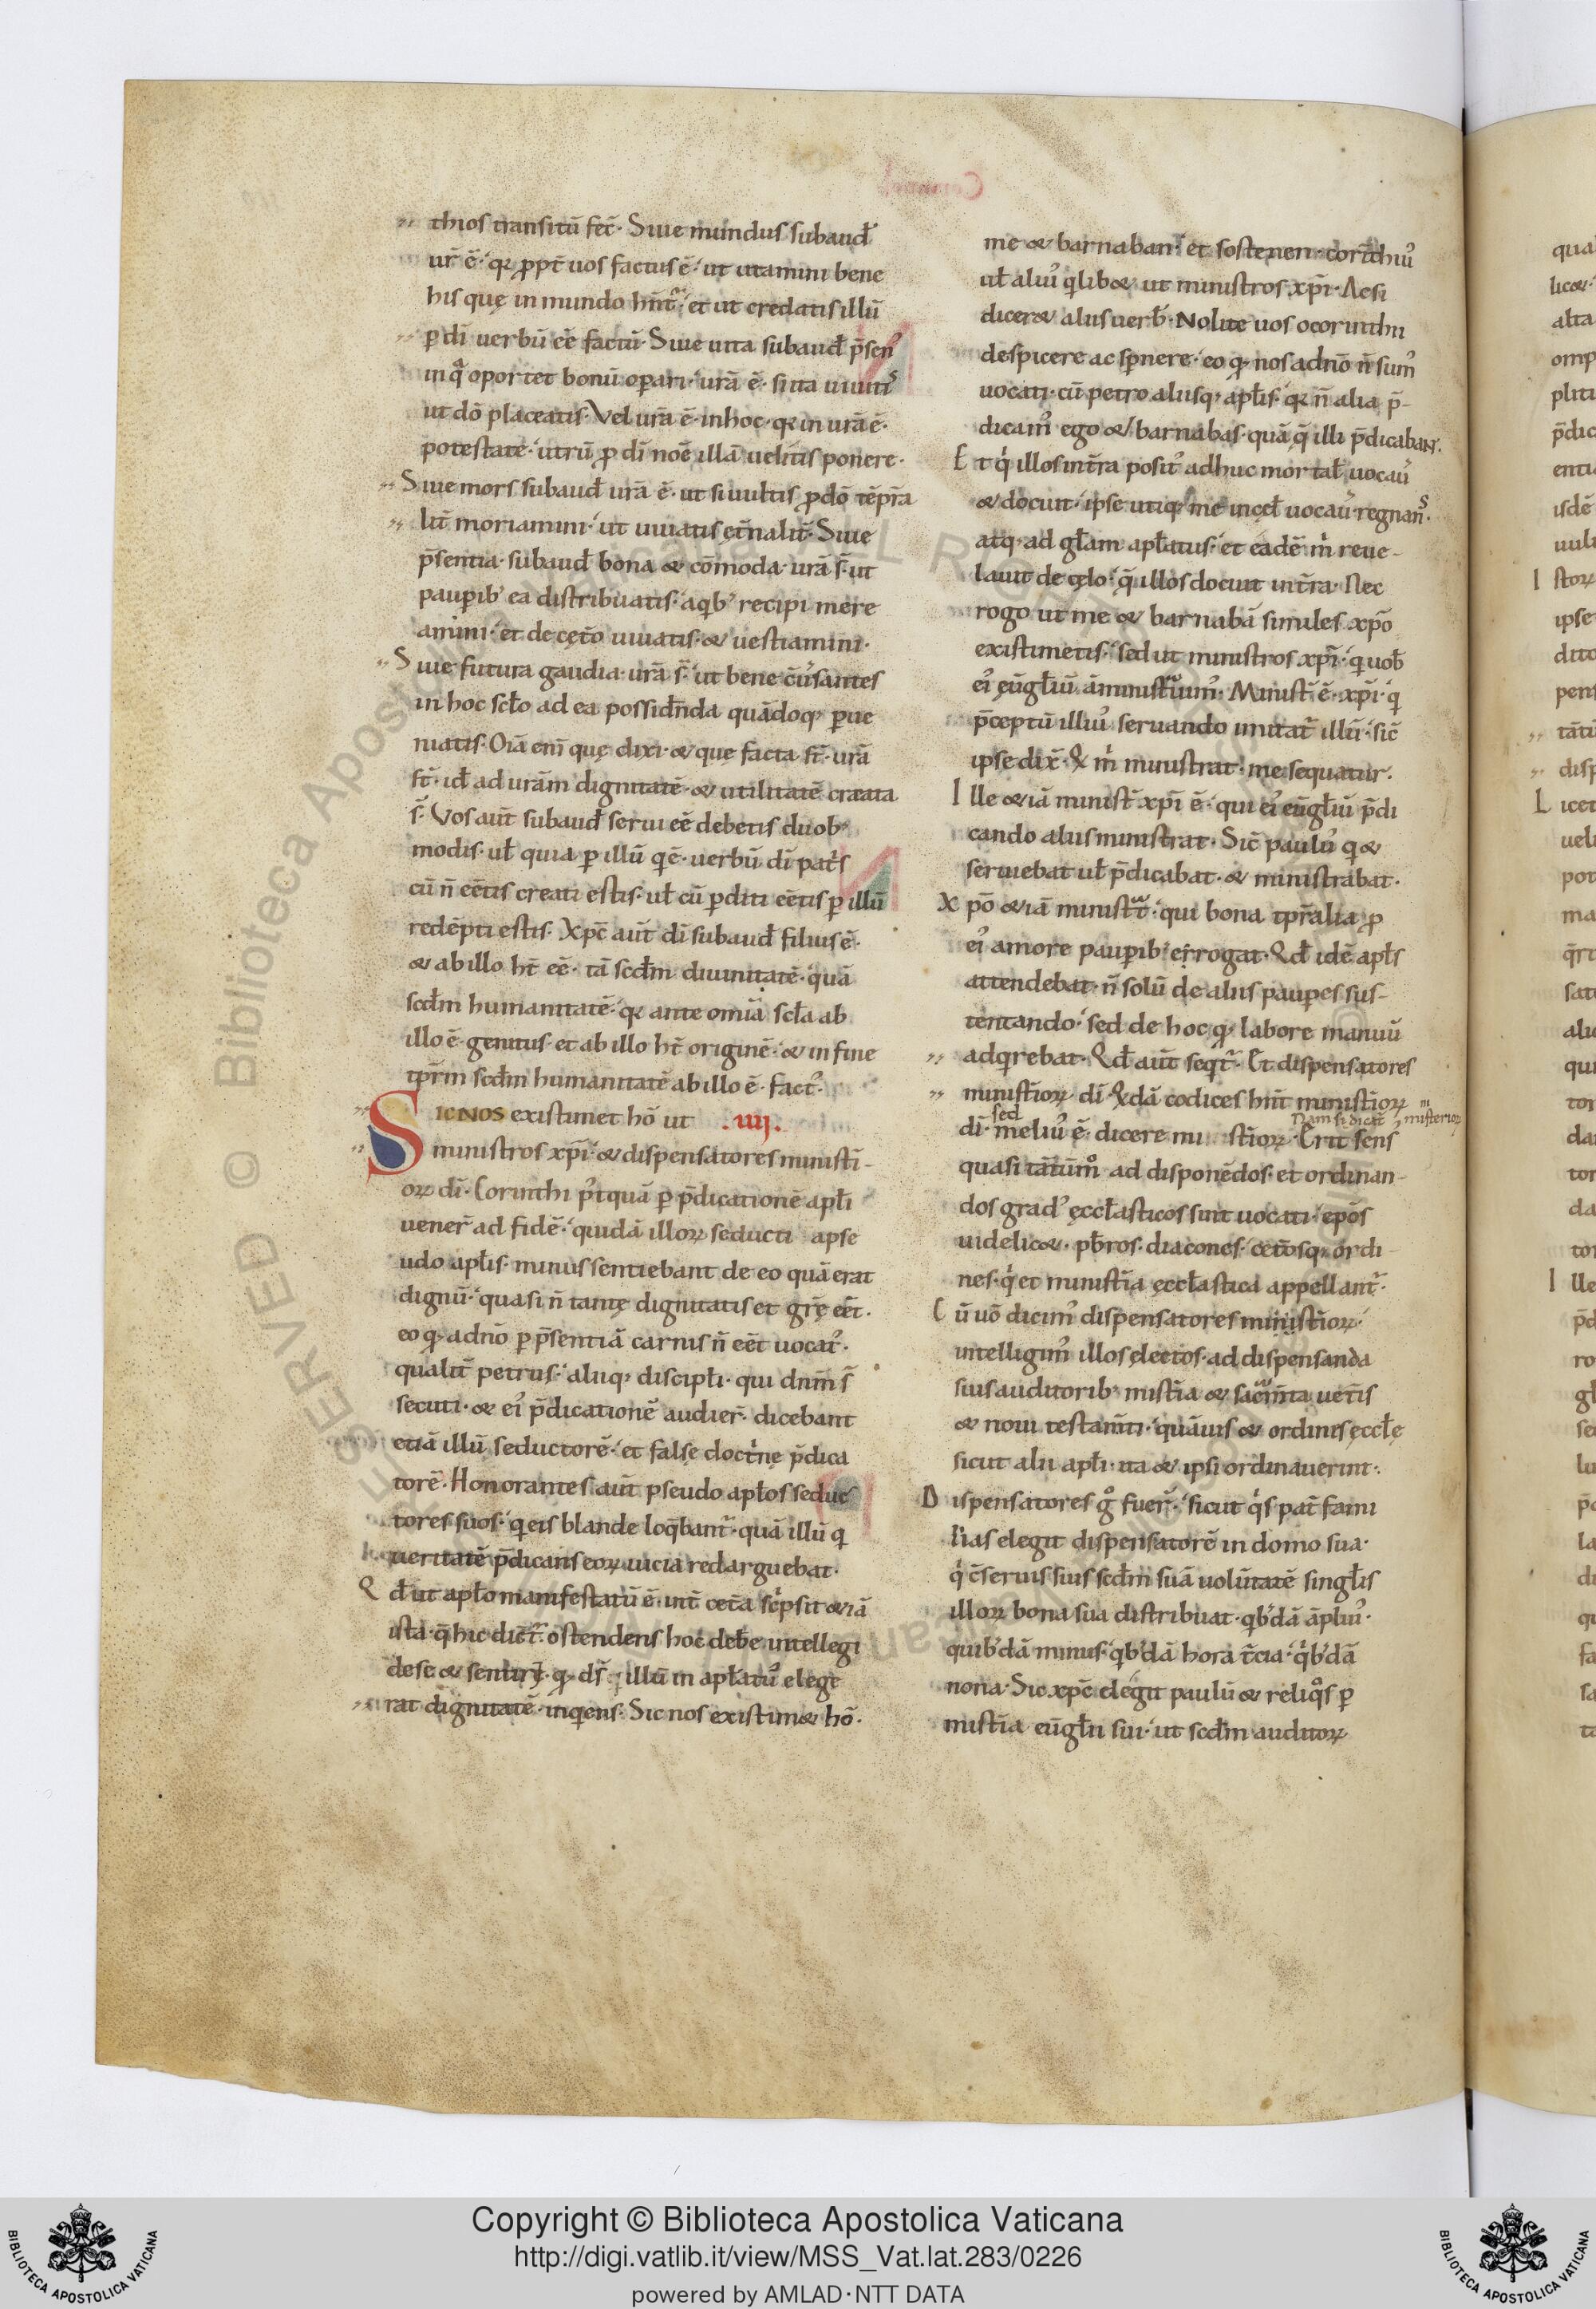 thios transitū fec̄. Siue mundus subaud̄
ur̄ ē. qꝛ ꝓpt̄ uos factus ē. ut utamini bene
his quę in mundo hn̄t. et ut credatis illū
ꝑ dī uerbū eē factū. Siue uita subaud̄ p̄sens
in q̄ oportet bonū operari. urā ē. si ita uiuitis
ut dō placeatis. Vel urā ē. in hoc. qꝛ in urā ē.
potestate. utrū ꝓ dī nōe illā uelitis ponere.
Siue mors subaud̄ urā ē. ut si uultis ꝓ dō tēpra
lit̄ moriamini. ut uiuatis et̄nalit̄. Siue
p̄sentia. subaud̄ bona & cōmoda. urā s̄. ut
pauꝑib' ea distribuatis. a qb' recipi mere
amini. et de cęt̄o uiuatis. & uestiamini.
Siue futura gaudia. urā s̄. ut bene c̄uersantes
in hoc sclo ad ea possidn̄da quādoq; ꝑue
niatis. Oīa eni quę dixi. & quę facta st̄. urā
st̄. id̄ ad urām dignitatē. & utilitatē creata
s̄. Vos aut̄ subaud̄ serui eē debetis duob'
modis. ul̄ quia ꝑ illū q̄ ē. uerbū dī pat̄s
cū n̄ eētis creati estis. ul̄ cū ꝑditi eētis ꝑ illū
redēpti estis. Xpc̄ aut̄ dī subaud̄ filius ē.
& ab illo ht̄ eē. tā scdm̄ diuinitatē. quā
scdm̄ humanitatē. qꝛ ante omia scla ab
illo ē. genitus. et ab illo ht̄ originē. & in fine
tpr̄m scdm̄ humanitatē ab illo ē. fact'.
SIC NOS existimet hō ut .IIII.
ministros xpī. & dispensatores minist̄i-
oꝝ dī. Corinthi p'tquā ꝑ p̄dicationē apl̄i
uener̄ ad fidē. quidā illoꝝ seducti a pse
udo apl̄is. minus sentiebant de eo quā erat
dignū. quasi n̄ tantę dignitatis et gr̄ę eēt.
eo q; a dn̄o ꝑ p̄sentiā carnis n̄ eēt uocat'.
qualit̄ petrus. aliiq; discipl̄i. qui dnm̄ s̄
secuti. & ei' p̄dicationē audier̄. dicebant
etiā illū seductorē. et false doct̄nę p̄dica
torē. Honorantes aut̄ pseudo apl̄os seduc
tores suos. q̄ eis blande loq̄bant̄. quā illū q̄
ueritatē p̄dicans eoꝝ uicia redarguebat.
Qd̄ ut apl̄o manifestatū ē. int̄ cet̄a sc̄psit &iā
ista. q̄ hic dic̄t. ostendens hoc debe intellegi
de se & sentirę. q; ds̄ illū in apl̄atu' elege
rat dignitatē. inq̄ens. Sic nos existim& hō.
me & barnaban. et sostenen. corīthiu'
ul̄ aliu' q̄lib&. ut ministros xpī. Ac si
dicer& aliis uerb̄. Nolite uos o corinthii
despicere ac sꝑnere. eo q; nos a dn̄o n̄ sum'
uocati. cū petro aliisq; apl̄is. qꝛ n̄ alia p̄-
dicam' ego & barnabas. quā q̄ illi p̄dicabant.
Et q̄ illos int̄ra posit' adhuc mortal̄ uocau'
& docuit. ipse utiq; me in cęl̄ uocau' regnans.
atq; ad gl̄am apl̄atus. et eadē m̄ reue-
lauit de cęlo. q̄ illos docuit int̄ra. Nec
rogo ut me & barnabā similes xpō
existimetis. sed ut ministros xpī. q̄ uob̄
ei' eūgl̄iū āministrium'. Minist̄ ē. xpī. q̄
p̄ceptū illiu' seruando imitat̄ illū. sic̄
ipse dix̄. Q m̄ ministrat. me sequatur.
Ille &iā minist̄ xpī ē. qui ei' eūgl̄iū p̄di
cando aliis ministrat. Sic̄ paulu' q̄ &
seruiebat ul̄ p̄dicabat. & ministrabat.
Xpō &iā minist̄t. qui bona tpr̄alia ꝓ
ei' amore pauꝑib' errogat. Qd̄ idē apl̄s
attendebat. n̄ solū de aliis pauꝑes sus-
tentando. sed de hoc q; labore manuū
adq̄rebat. Qd̄ aut̄ seqt̄. Et dispensatores
minist̄ioꝝ. dī. Q̄dā codices hn̄t minist̄ioꝝ
Nam si dicat̄ misterioꝝ
sed
dī. meliu' ē. dicere mi stīoꝝ. Erit sens'
quasi tātūm° ad disponēdos. et ordinan-
dos grad' ęccl̄asticos sint uocati. ep̄os
uidelic&. pb̄ros. diacones. cet̄osq; ordi-
nes. q̄ et minist̄ia ęccl̄astica appellant̄.
Cū uō dicim' dispensatores minist̄ioꝝ.
intelligim' illos electos. ad dispensanda
suis auditorib' mist̄ia & sacm̄ta uet̄is
& noui testam̄ti. quāuis & ordinis ęccl̄ę
sicut alii apl̄i. ita & ipsi ordinauerint.
Dispensatores g° fuer̄. sicut q̄s pat̄ fami
lias elegit dispensatorē in domo sua.
q̄ c̄seruis suis scdm̄ suā uolūtatē singl̄is
illoꝝ bona sua distribuat. qb'dā āpliu'.
quib'dā minus. qb'dā hora t̄cia. qb'dā
nona. Sic xpc̄ elegit paulū & reliq°s ꝑ
mist̄ia eūgl̄ii sui. ut scdm̄ auditoꝝ
Copyright © Biblioteca Apostolica Vaticana
http://digi.vatlib.it/view/MSS_Vat.lat.283/0226
powered by AMLAD·NTT DATA